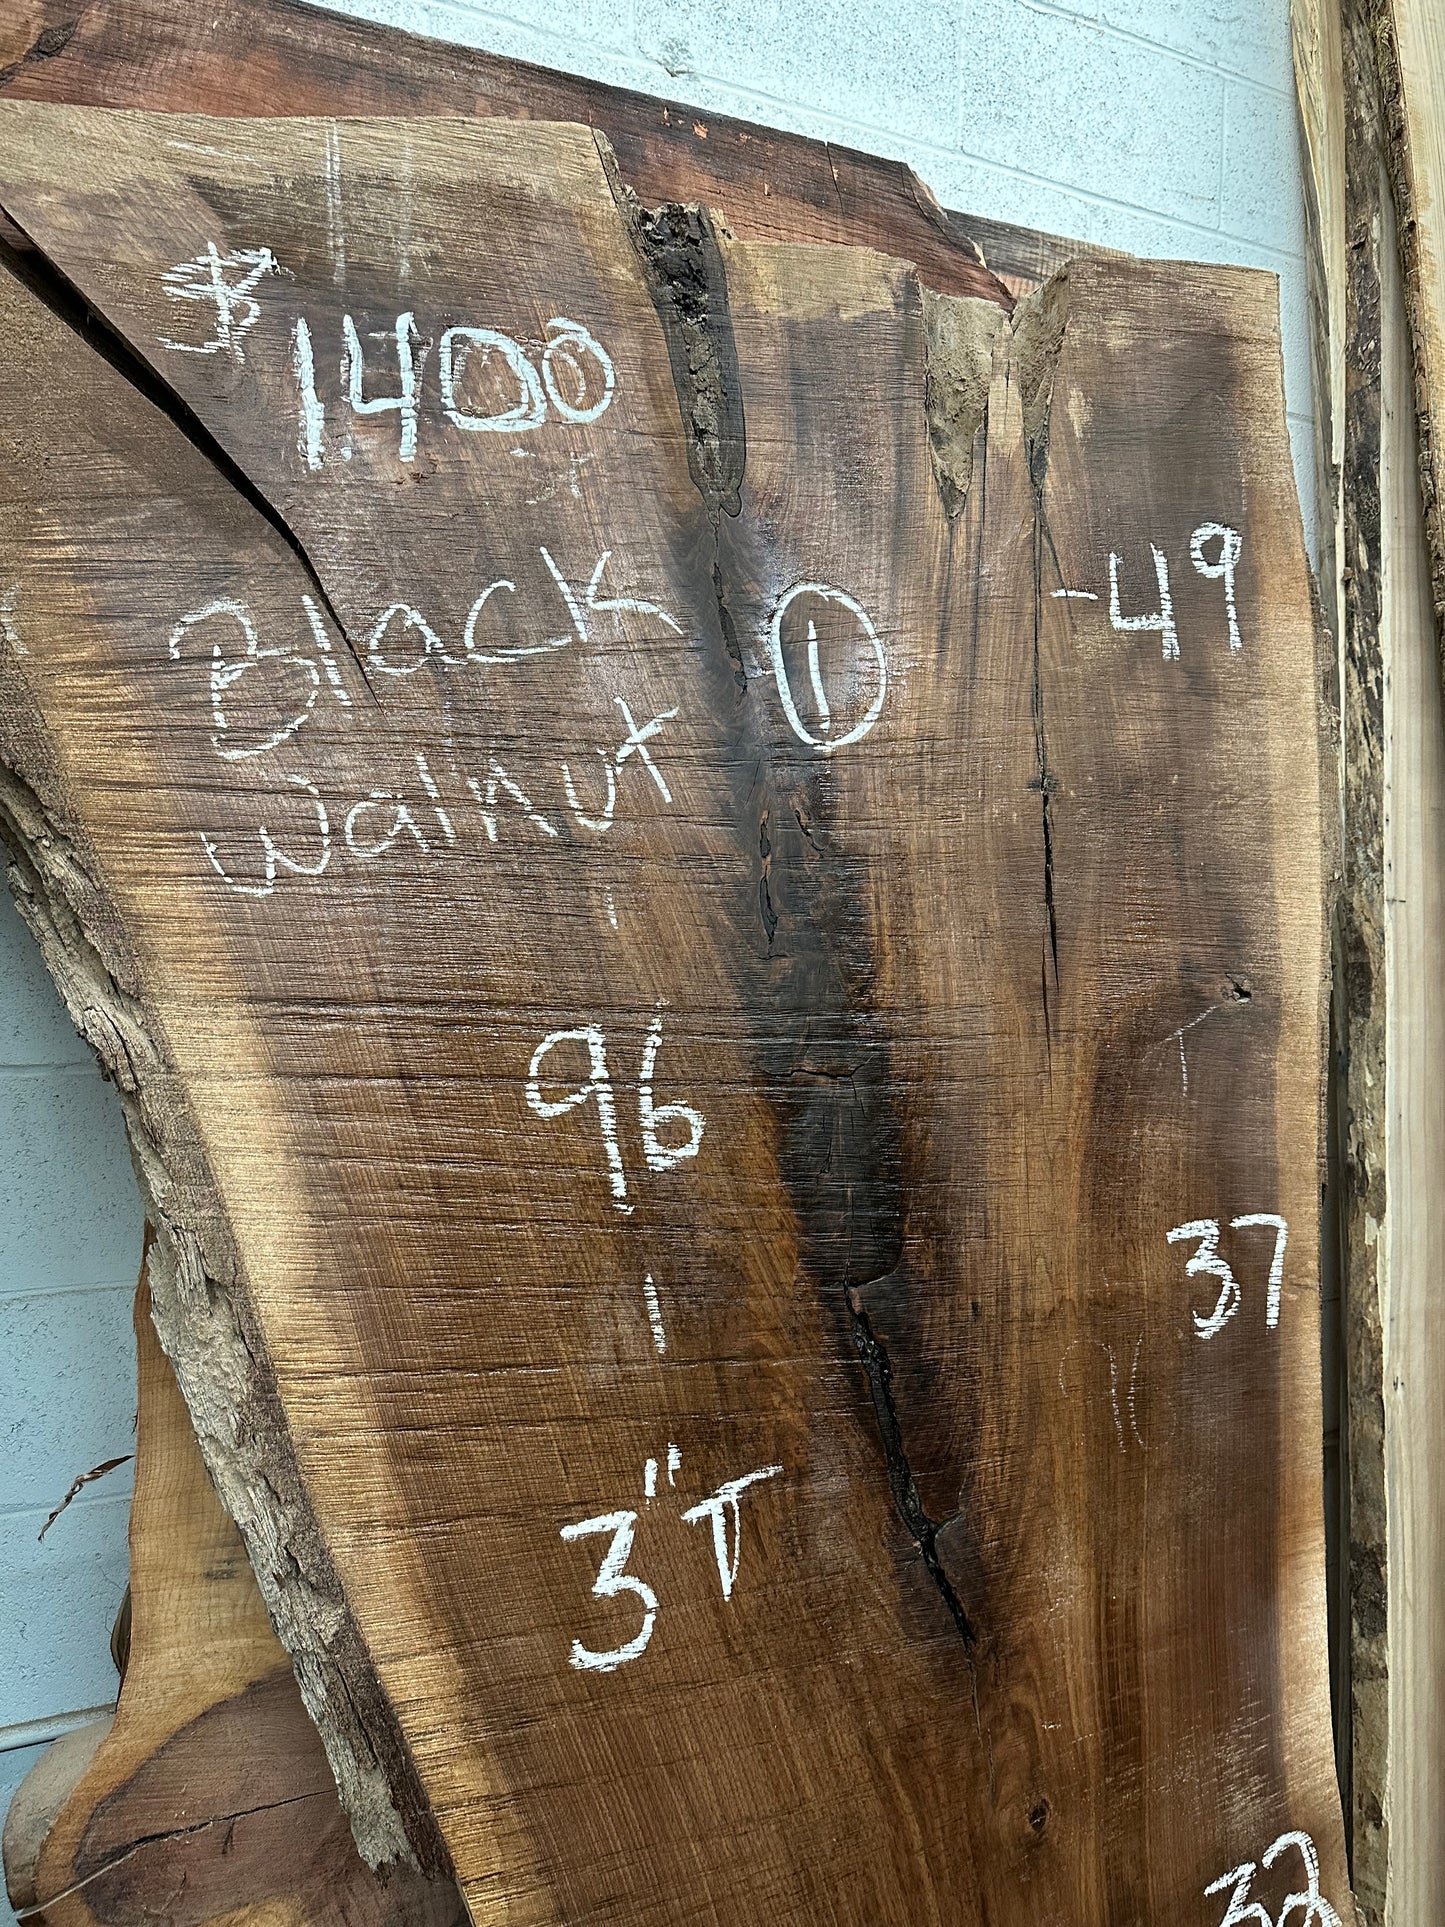 $ 1,400
Black
Walnut
1
- 49
96
37
3" T
32